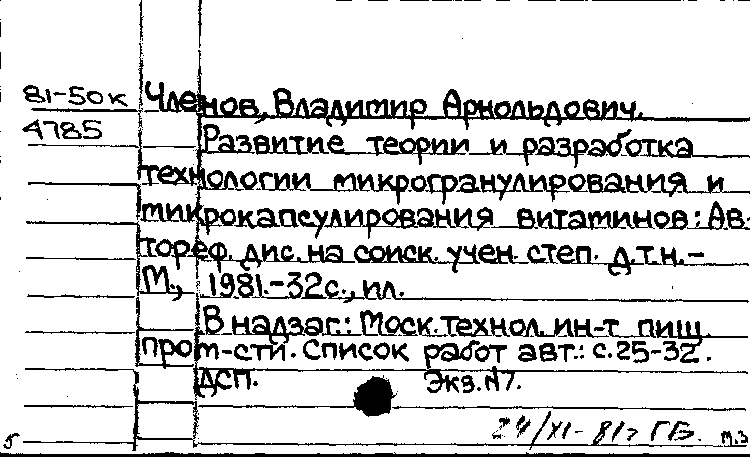 81-50к Членов, Владимир Арнольдович.
4785 Развитие теории и разработка
технологии микрогранулирования и
микрокапсулирования витаминов: Ав-
тореф. дис. на соиск. учен. степ. д.т.н.-
М., 1981.-32с., ил.
В надзаг.: Моск. технол. ин-т пищ.
пром-сти. Список работ авт.: с.25-32.
ДСП. Экз.N7.
24/XI-81г ГБ. м.з
5